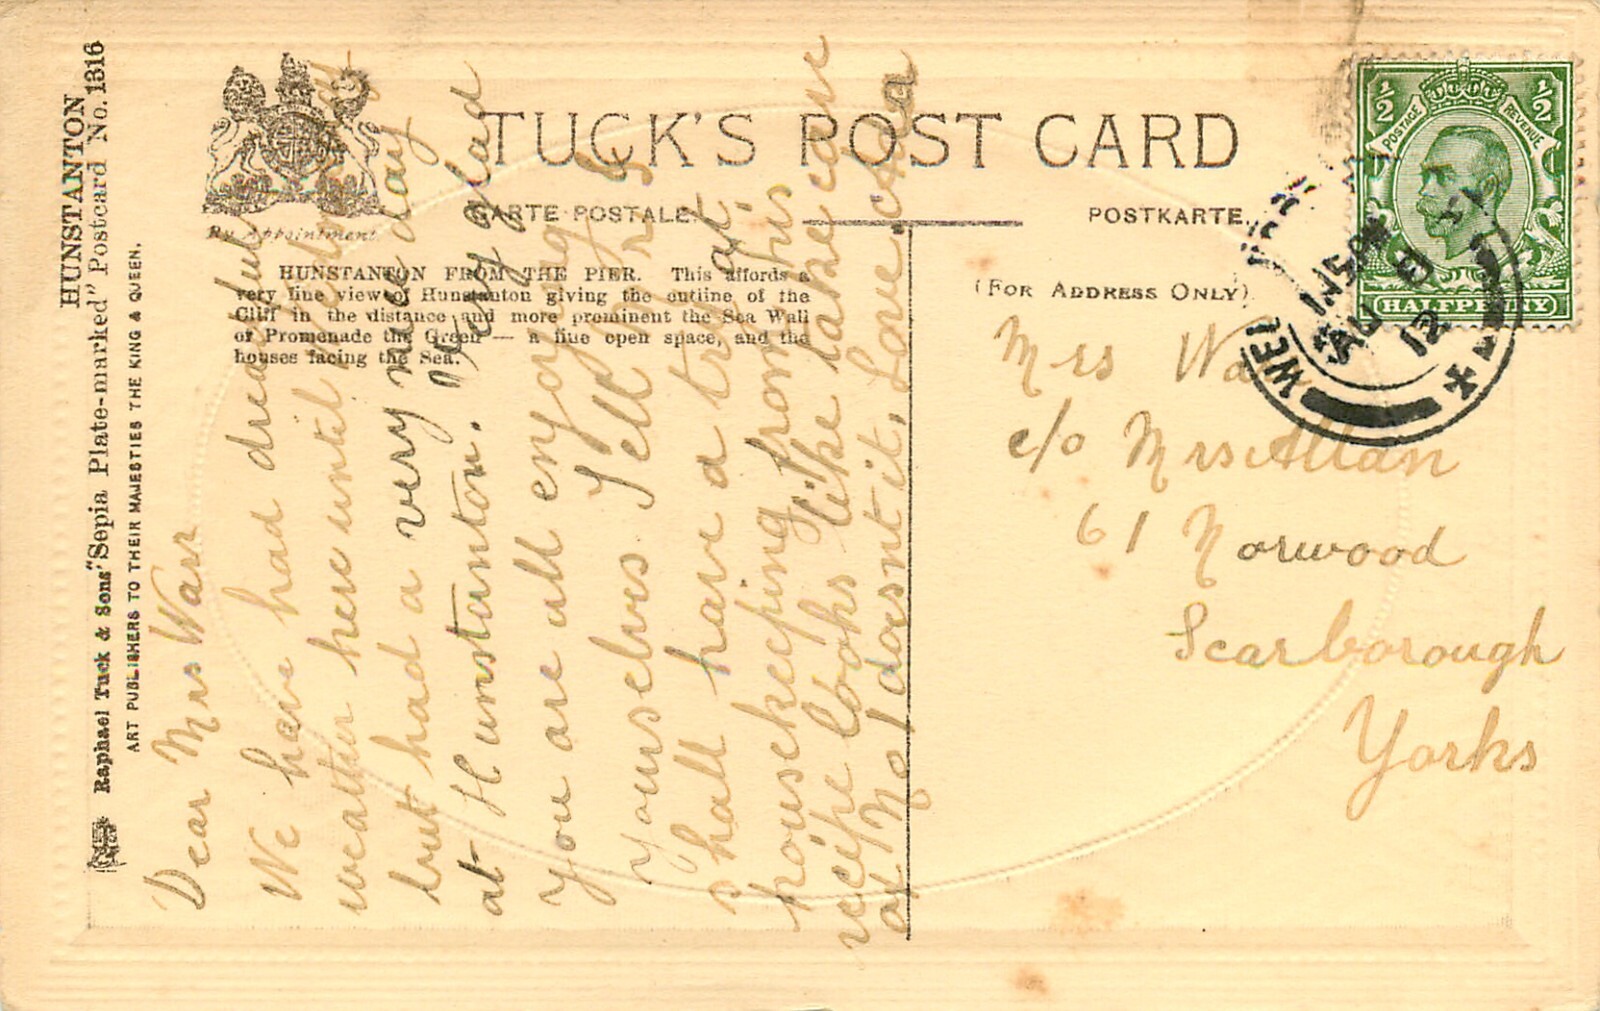 HUNSTANTON
Raphael Tuck & Sons' "Sepia Plate-marked" Postcard No. 1316
ART PUBLISHERS TO THEIR MAJESTIES THE KING & QUEEN.
By Appointment.
TUCK'S POST CARD
CARTE POSTALE.
POSTKARTE.
HUNSTANTON FROM THE PIER. This affords a
very fine view of Hunstanton giving the outline of the
Cliff in the distance and more prominent the Sea Wall
or Promenade the Green — a fine open space, and the
houses facing the Sea.
(FOR ADDRESS ONLY)
½ ½
POSTAGE REVENUE
HALFPENNY
WEL
AU
12
Dear Mrs Warr
We have had dreadful
weather here until
but had a very nice day
at Hunstanton. Very glad
you are all enjoying
yourselves Tell Mrs B
shall have a try at
housekeeping from this
recipe looks like take care
of No 1 doesnt it, Love Ada
Mrs
c/o Mrs Allan
61 Norwood
Scarborough
Yorks